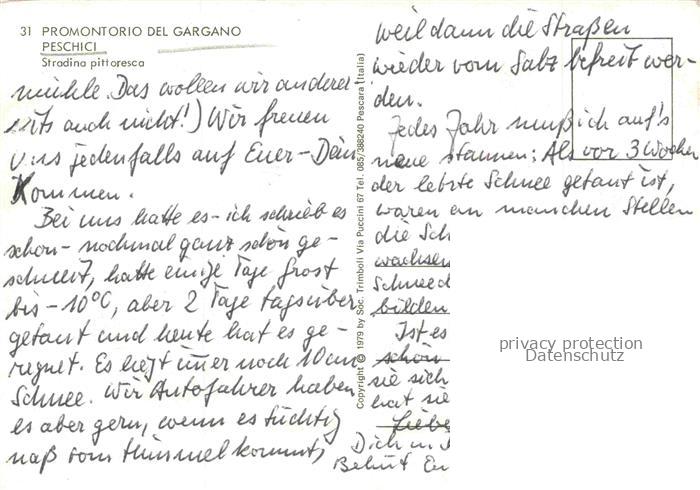 31 PROMONTORIO DEL GARGANO
PESCHICI
Stradina pittoresca
mühle. Das wollen wir anderer
seits auch nicht!) Wir freuen
uns jedenfalls auf Euer-Dein
Kommen.
Bei uns hatte es - ich schrieb es
schon - nochmal ganz schön ge-
schneit, hatte einige Tage Frost
bis -10°C, aber 2 Tage tagsüber
getaut und heute hat es ge-
regnet. Es liegt immer noch 10 cm
Schnee. Wir Autofahrer haben
es aber gern, wenn es tüchtig
naß vom Himmel kommt,
Copyright © 1979 by Soc. Trimboli Via Puccini 67 Tel. 085/388240 Pescara (Italia)
weil dann die Straßen
wieder vom Salz befreit wer-
den.
Jedes Jahr muß ich auf's
neue staunen: Als vor 3 Wochen
der letzte Schnee getaut ist,
waren an manchen Stellen
die Sch
wachsen
Schneed
bilden
Ist es
schön
sie sich
hat sie
Liebe
Dich u.
Behüt Eu
privacy protection
Datenschutz